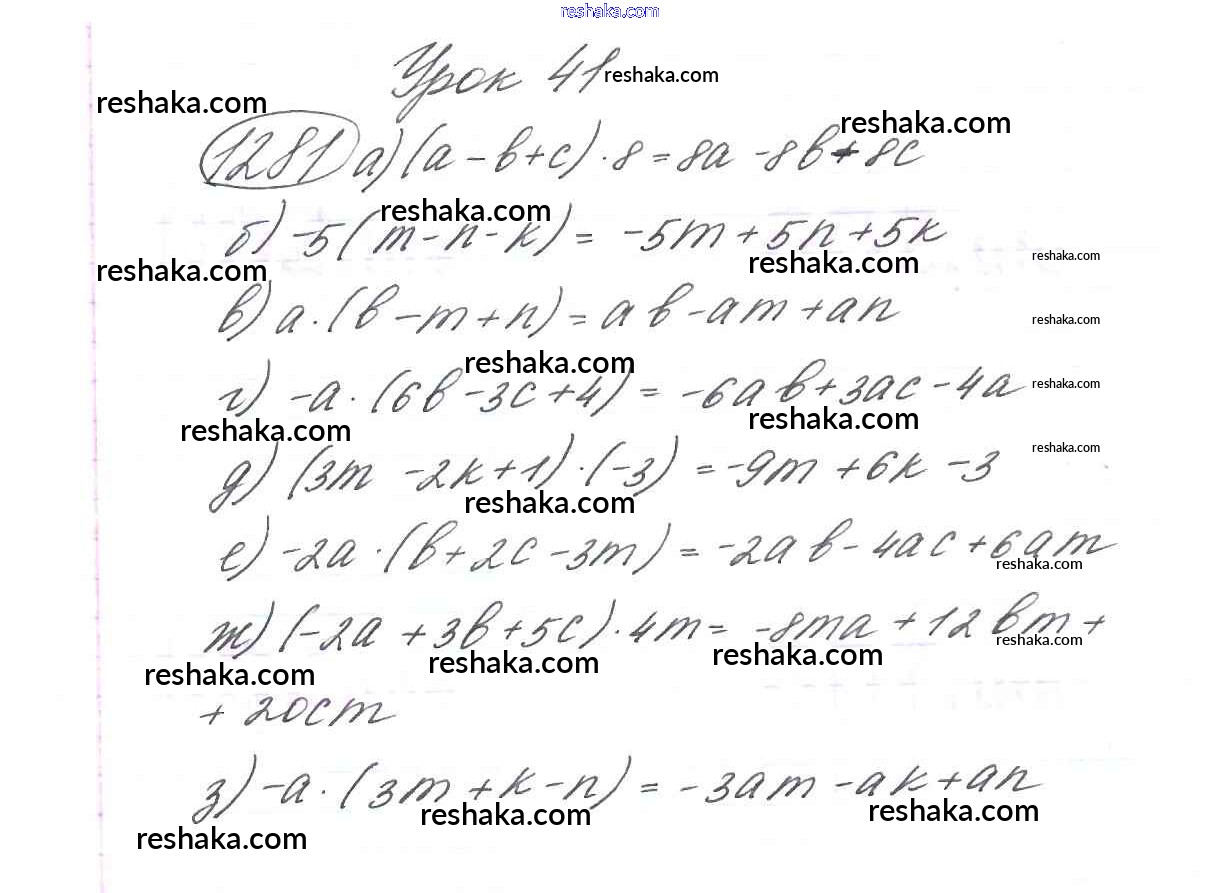 reshaka.com
Урок 41 reshaka.com
reshaka.com
reshaka.com
1281 а) (a - b + c) · 8 = 8a - 8b + 8c
reshaka.com
б) -5(m - n - k) = -5m + 5n + 5k
reshaka.com
reshaka.com
reshaka.com
в) a · (b - m + n) = ab - am + an
reshaka.com
reshaka.com
г) -a · (6b - 3c + 4) = -6ab + 3ac - 4a
reshaka.com
reshaka.com
reshaka.com
д) (3m - 2k + 1) · (-3) = -9m + 6k - 3
reshaka.com
reshaka.com
е) -2a · (b + 2c - 3m) = -2ab - 4ac + 6am
reshaka.com
ж) (-2a + 3b + 5c) · 4m = -8ma + 12bm +
reshaka.com
reshaka.com
reshaka.com
reshaka.com
+ 20cm
з) -a · (3m + k - n) = -3am - ak + an
reshaka.com
reshaka.com
reshaka.com